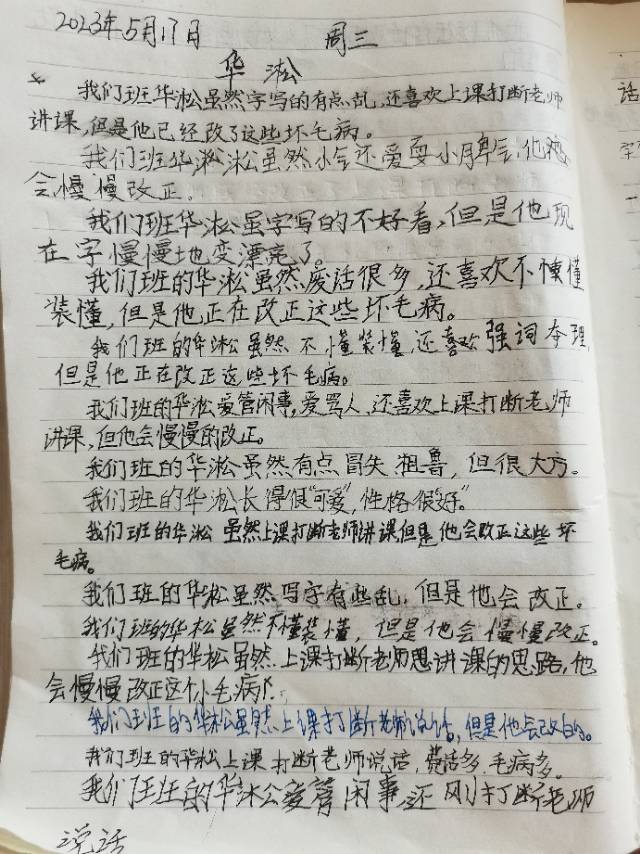 2023年5月17日 周三
华淞
我们班华淞虽然字写的有点乱,还喜欢上课打断老师
讲课,但是他已经改了这些坏毛病。
我们班华淞淞虽然小气还爱耍小脾气,他
会慢慢改正.
我们班华淞虽字写的不好看,但是他现
在字慢慢地变漂亮了。
我们班的华淞虽然废话很多,还喜欢不懂懂
装懂,但是他正在改正这些坏毛病。
我们班的华淞虽然不懂装懂,还喜欢强词夺理,
但是他正在改正这些坏毛病。
我们班的华淞爱管闲事,爱骂人,还喜欢上课打断老师
讲课,但他会慢慢的改正。
我们班的华淞虽然有点冒失粗鲁,但很大方。
我们班的华淞长得很"可爱",性格很"好"。
我们班的华淞虽然上课打断老师讲课但是他会改正这些坏
毛病。
我们班的华淞虽然写字有些乱,但是他会改正。
我们班的华淞虽然不懂装懂,但是他会慢慢改正。
我们班的华淞虽然上课打断老师思讲课的思路,他
会慢慢改正这个小毛病
我们班的华淞虽然上课打断老师说话,但是他会改的。
我们班的华淞上课打断老师说话,费话多,毛病多。
我们班的华淞爱管闲事,还打断老师
说话
话